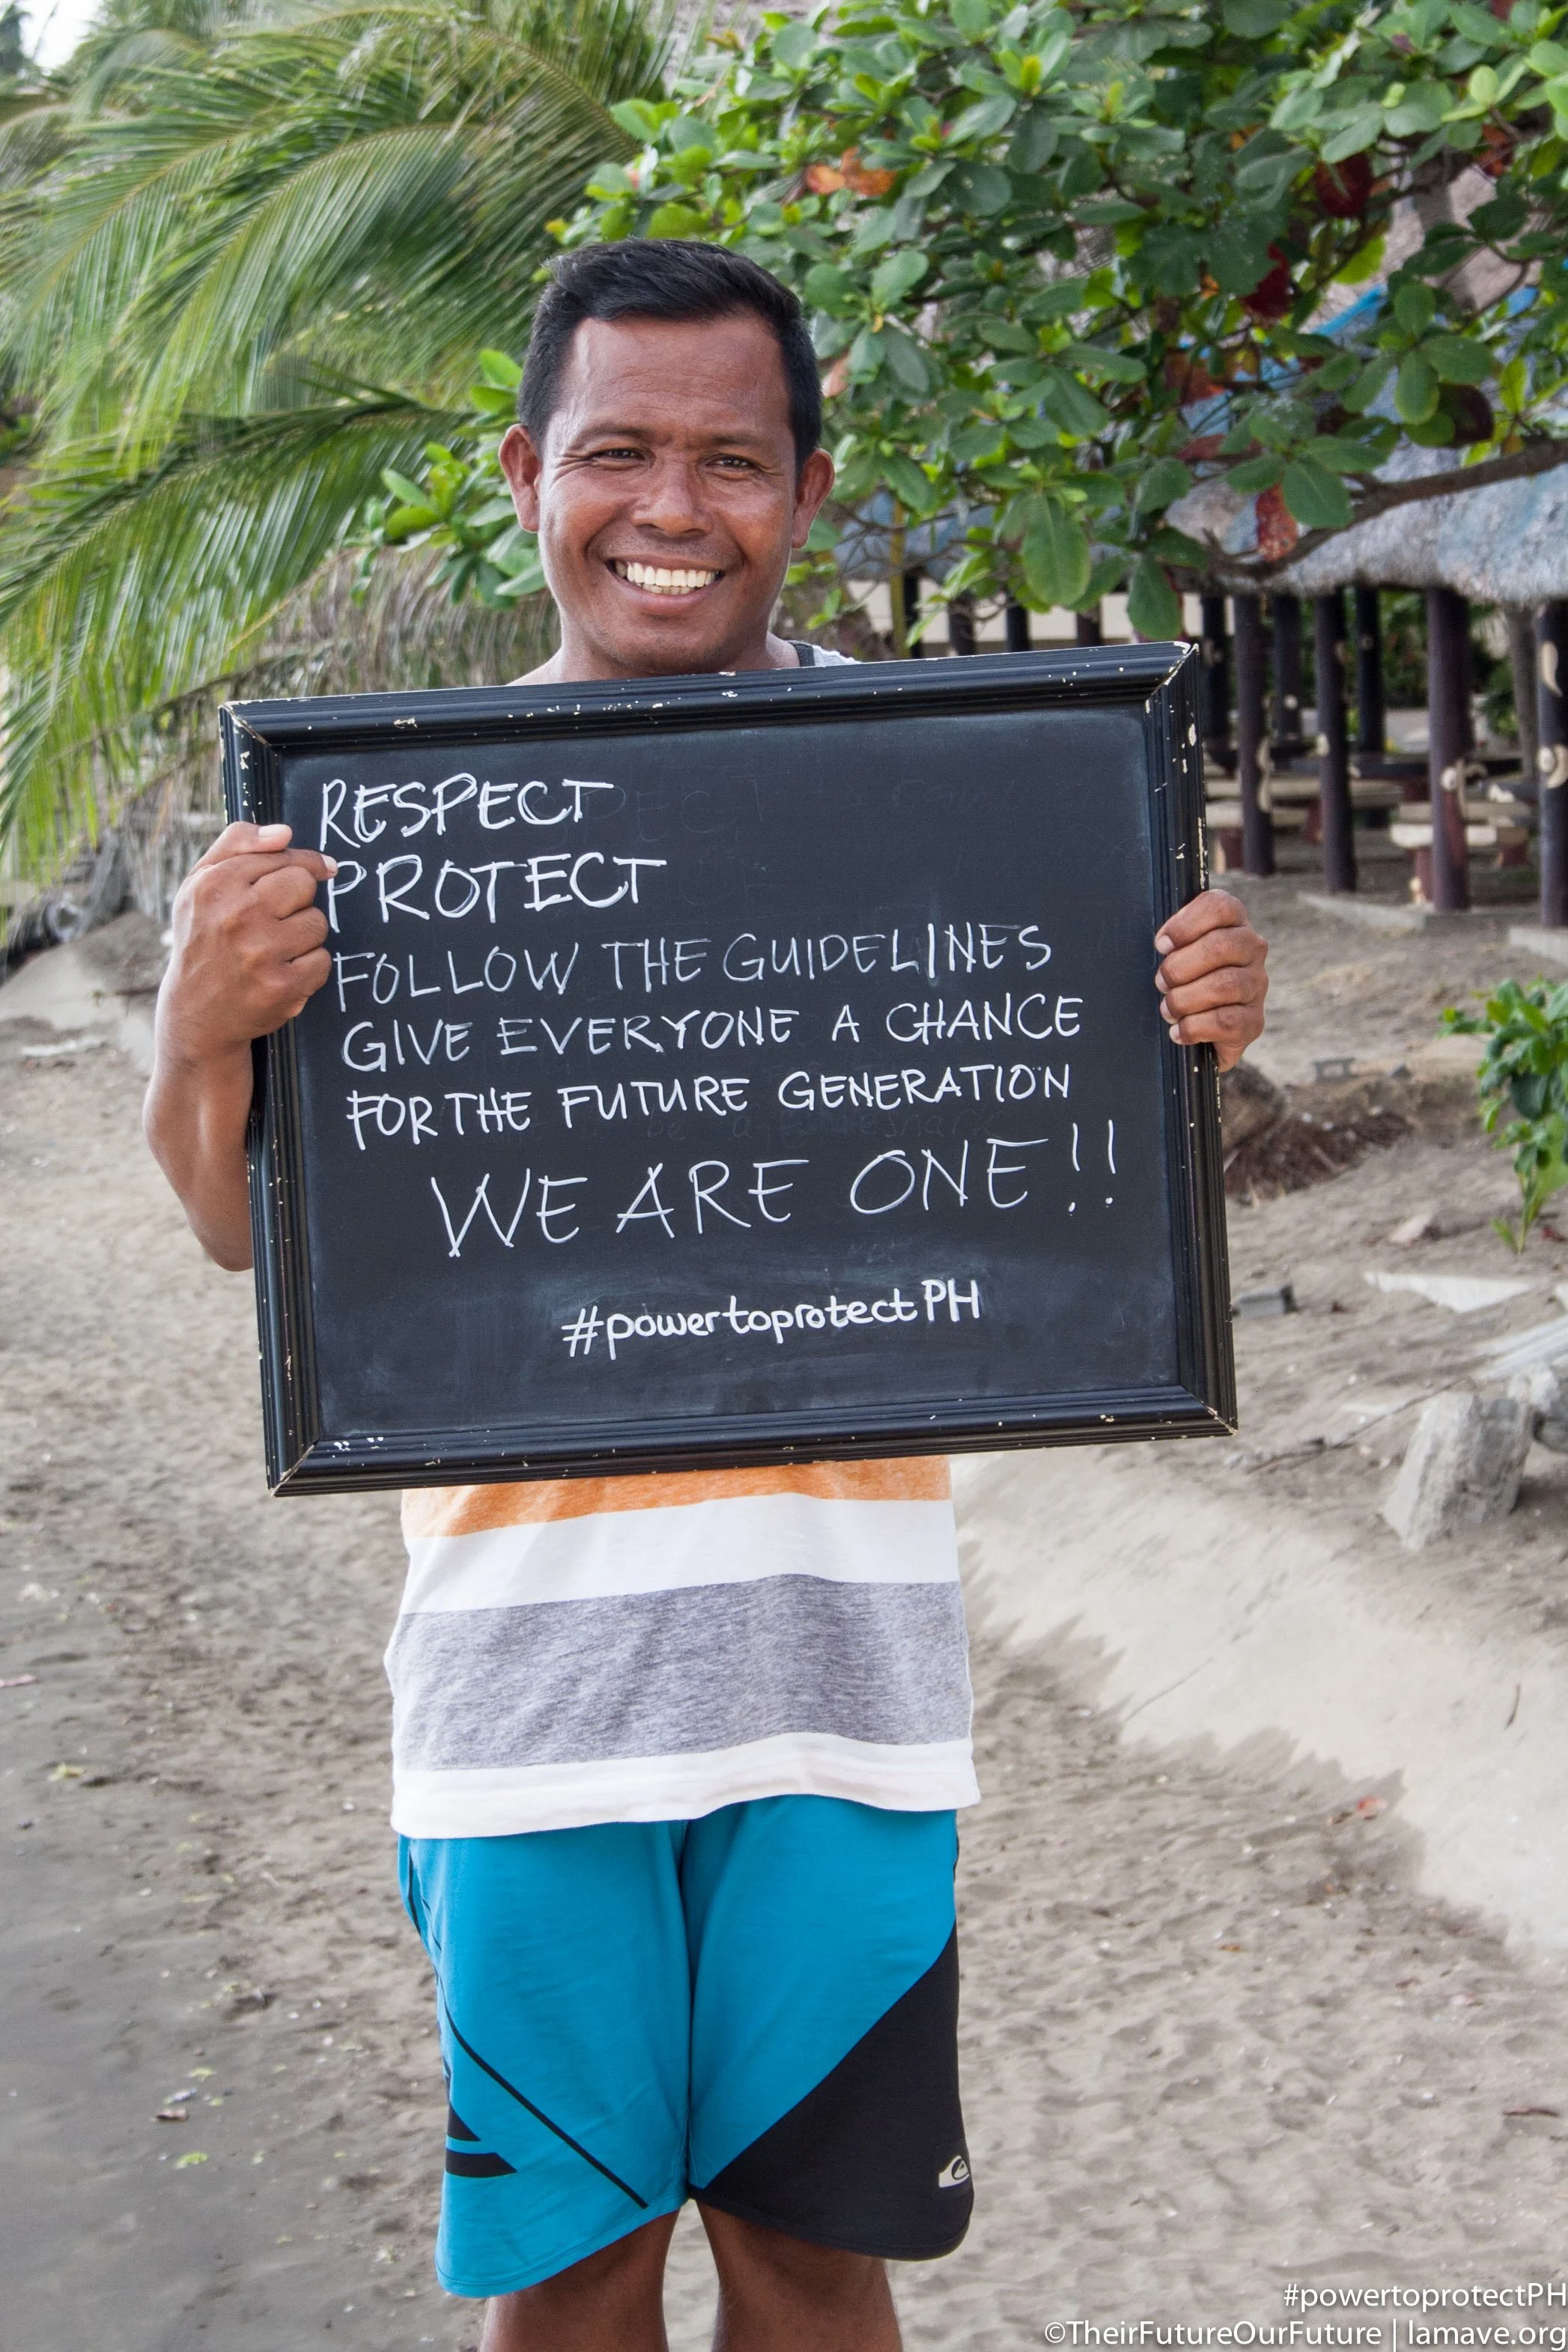 RESPECT
PROTECT
FOLLOW THE GUIDELINES
GIVE EVERYONE A CHANCE
FOR THE FUTURE GENERATION
WE ARE ONE!!
#powertoprotectPH
#powertoprotectPH
©TheirFutureOurFuture | lamave.org